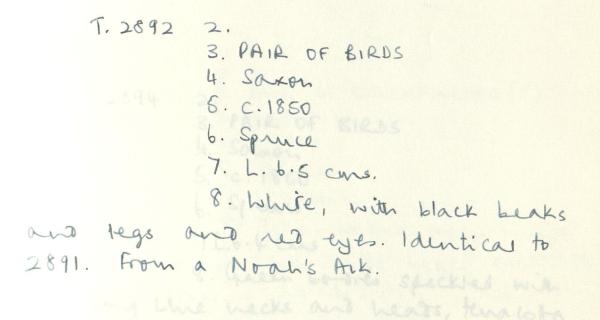 T. 2892 2.
3. PAIR OF BIRDS
4. Saxon
5. c.1850
6. Spruce
7. L. 6.5 cms.
8. White, with black beaks
and legs and red eyes. Identical to
2891. From a Noah's Ark.